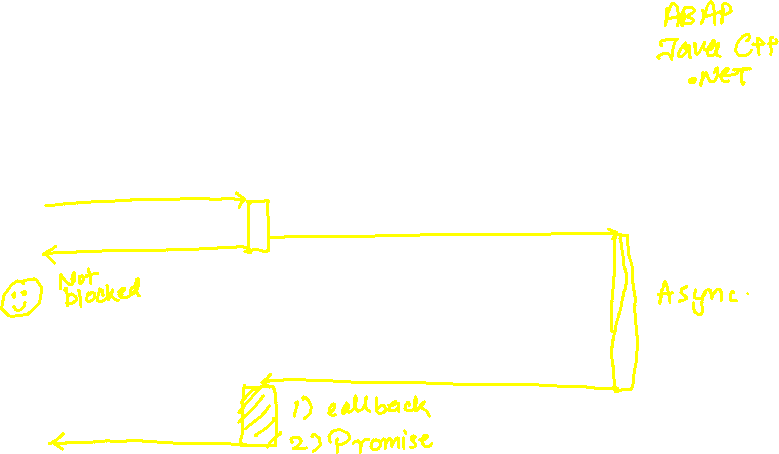 ABAP
Java C++
.NET
Not
blocked
Async.
1) callback
2) Promise